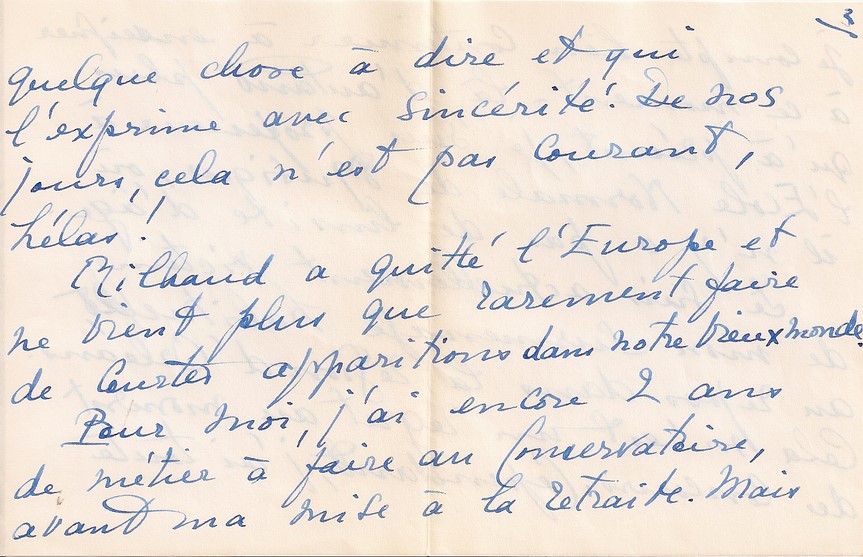 3
quelque chose à dire et qui
l'exprime avec sincérité. De nos
jours, cela n'est pas courant,
hélas!
Milhaud a quitté l'Europe et
ne vient plus que rarement faire
de courtes apparitions dans notre vieux monde.
Pour moi, j'ai encore 2 ans
de métier à faire au Conservatoire,
avant ma mise à la retraite. Mais